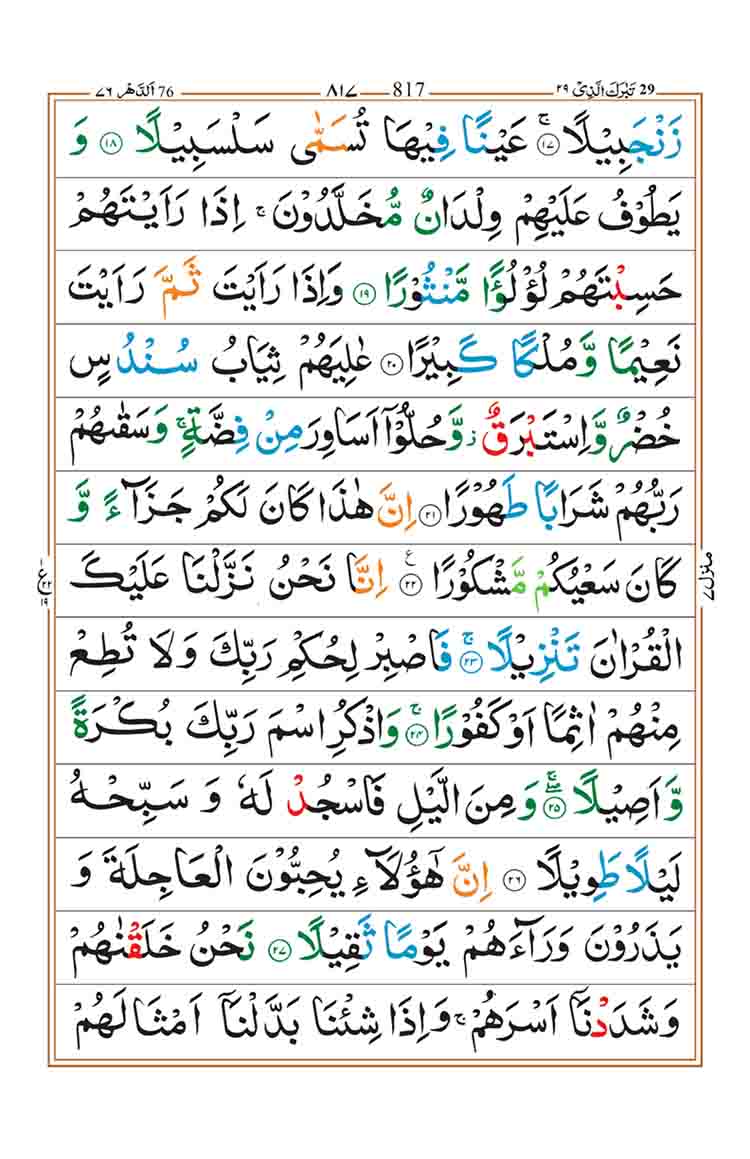 29 تَبٰرَكَ الَّذِىْ ٢٩ — 817 — ٨١٧ — 76 اَلدَّهْر ٧٦
زَنْجَبِيْلًا ۚ‏ ١٧ عَيْنًا فِيْهَا تُسَمّٰى سَلْسَبِيْلًا‏ ١٨ وَ
يَطُوْفُ عَلَيْهِمْ وِلْدَانٌ مُّخَلَّدُوْنَ ۚ اِذَا رَاَيْتَهُمْ
حَسِبْتَهُمْ لُؤْلُؤًا مَّنْثُوْرًا‏ ١٩ وَاِذَا رَاَيْتَ ثَمَّ رَاَيْتَ
نَعِيْمًا وَّمُلْكًا كَبِيْرًا‏ ٢٠ عٰلِيَهُمْ ثِيَابُ سُنْدُسٍ
خُضْرٌ وَّاِسْتَبْرَقٌ ز وَّحُلُّوْۤا اَسَاوِرَ مِنْ فِضَّةٍ ۚ وَسَقٰٮهُمْ
رَبُّهُمْ شَرَابًا طَهُوْرًا‏ ٢١ اِنَّ هٰذَا كَانَ لَكُمْ جَزَآءً وَّ
كَانَ سَعْيُكُمْ مَّشْكُوْرًا ع‏ ٢٢ اِنَّا نَحْنُ نَزَّلْنَا عَلَيْكَ
الْقُرْاٰنَ تَنْزِيْلًا ۚ‏ ٢٣ فَاصْبِرْ لِحُكْمِ رَبِّكَ وَلَا تُطِعْ
مِنْهُمْ اٰثِمًا اَوْ كَفُوْرًا ۚ‏ ٢٤ وَاذْكُرِ اسْمَ رَبِّكَ بُكْرَةً
وَّاَصِيْلًا ۖۚ‏ ٢٥ وَمِنَ الَّيْلِ فَاسْجُدْ لَهٗ وَ سَبِّحْهُ
لَيْلًا طَوِيْلًا‏ ٢٦ اِنَّ هٰٓؤُلَآءِ يُحِبُّوْنَ الْعَاجِلَةَ وَ
يَذَرُوْنَ وَرَآءَهُمْ يَوْمًا ثَقِيْلًا‏ ٢٧ نَحْنُ خَلَقْنٰهُمْ
وَشَدَدْنَاۤ اَسْرَهُمْ ۚ وَاِذَا شِئْنَا بَدَّلْنَاۤ اَمْثَالَهُمْ
منزل ٧
ع ٢٢ ١٩